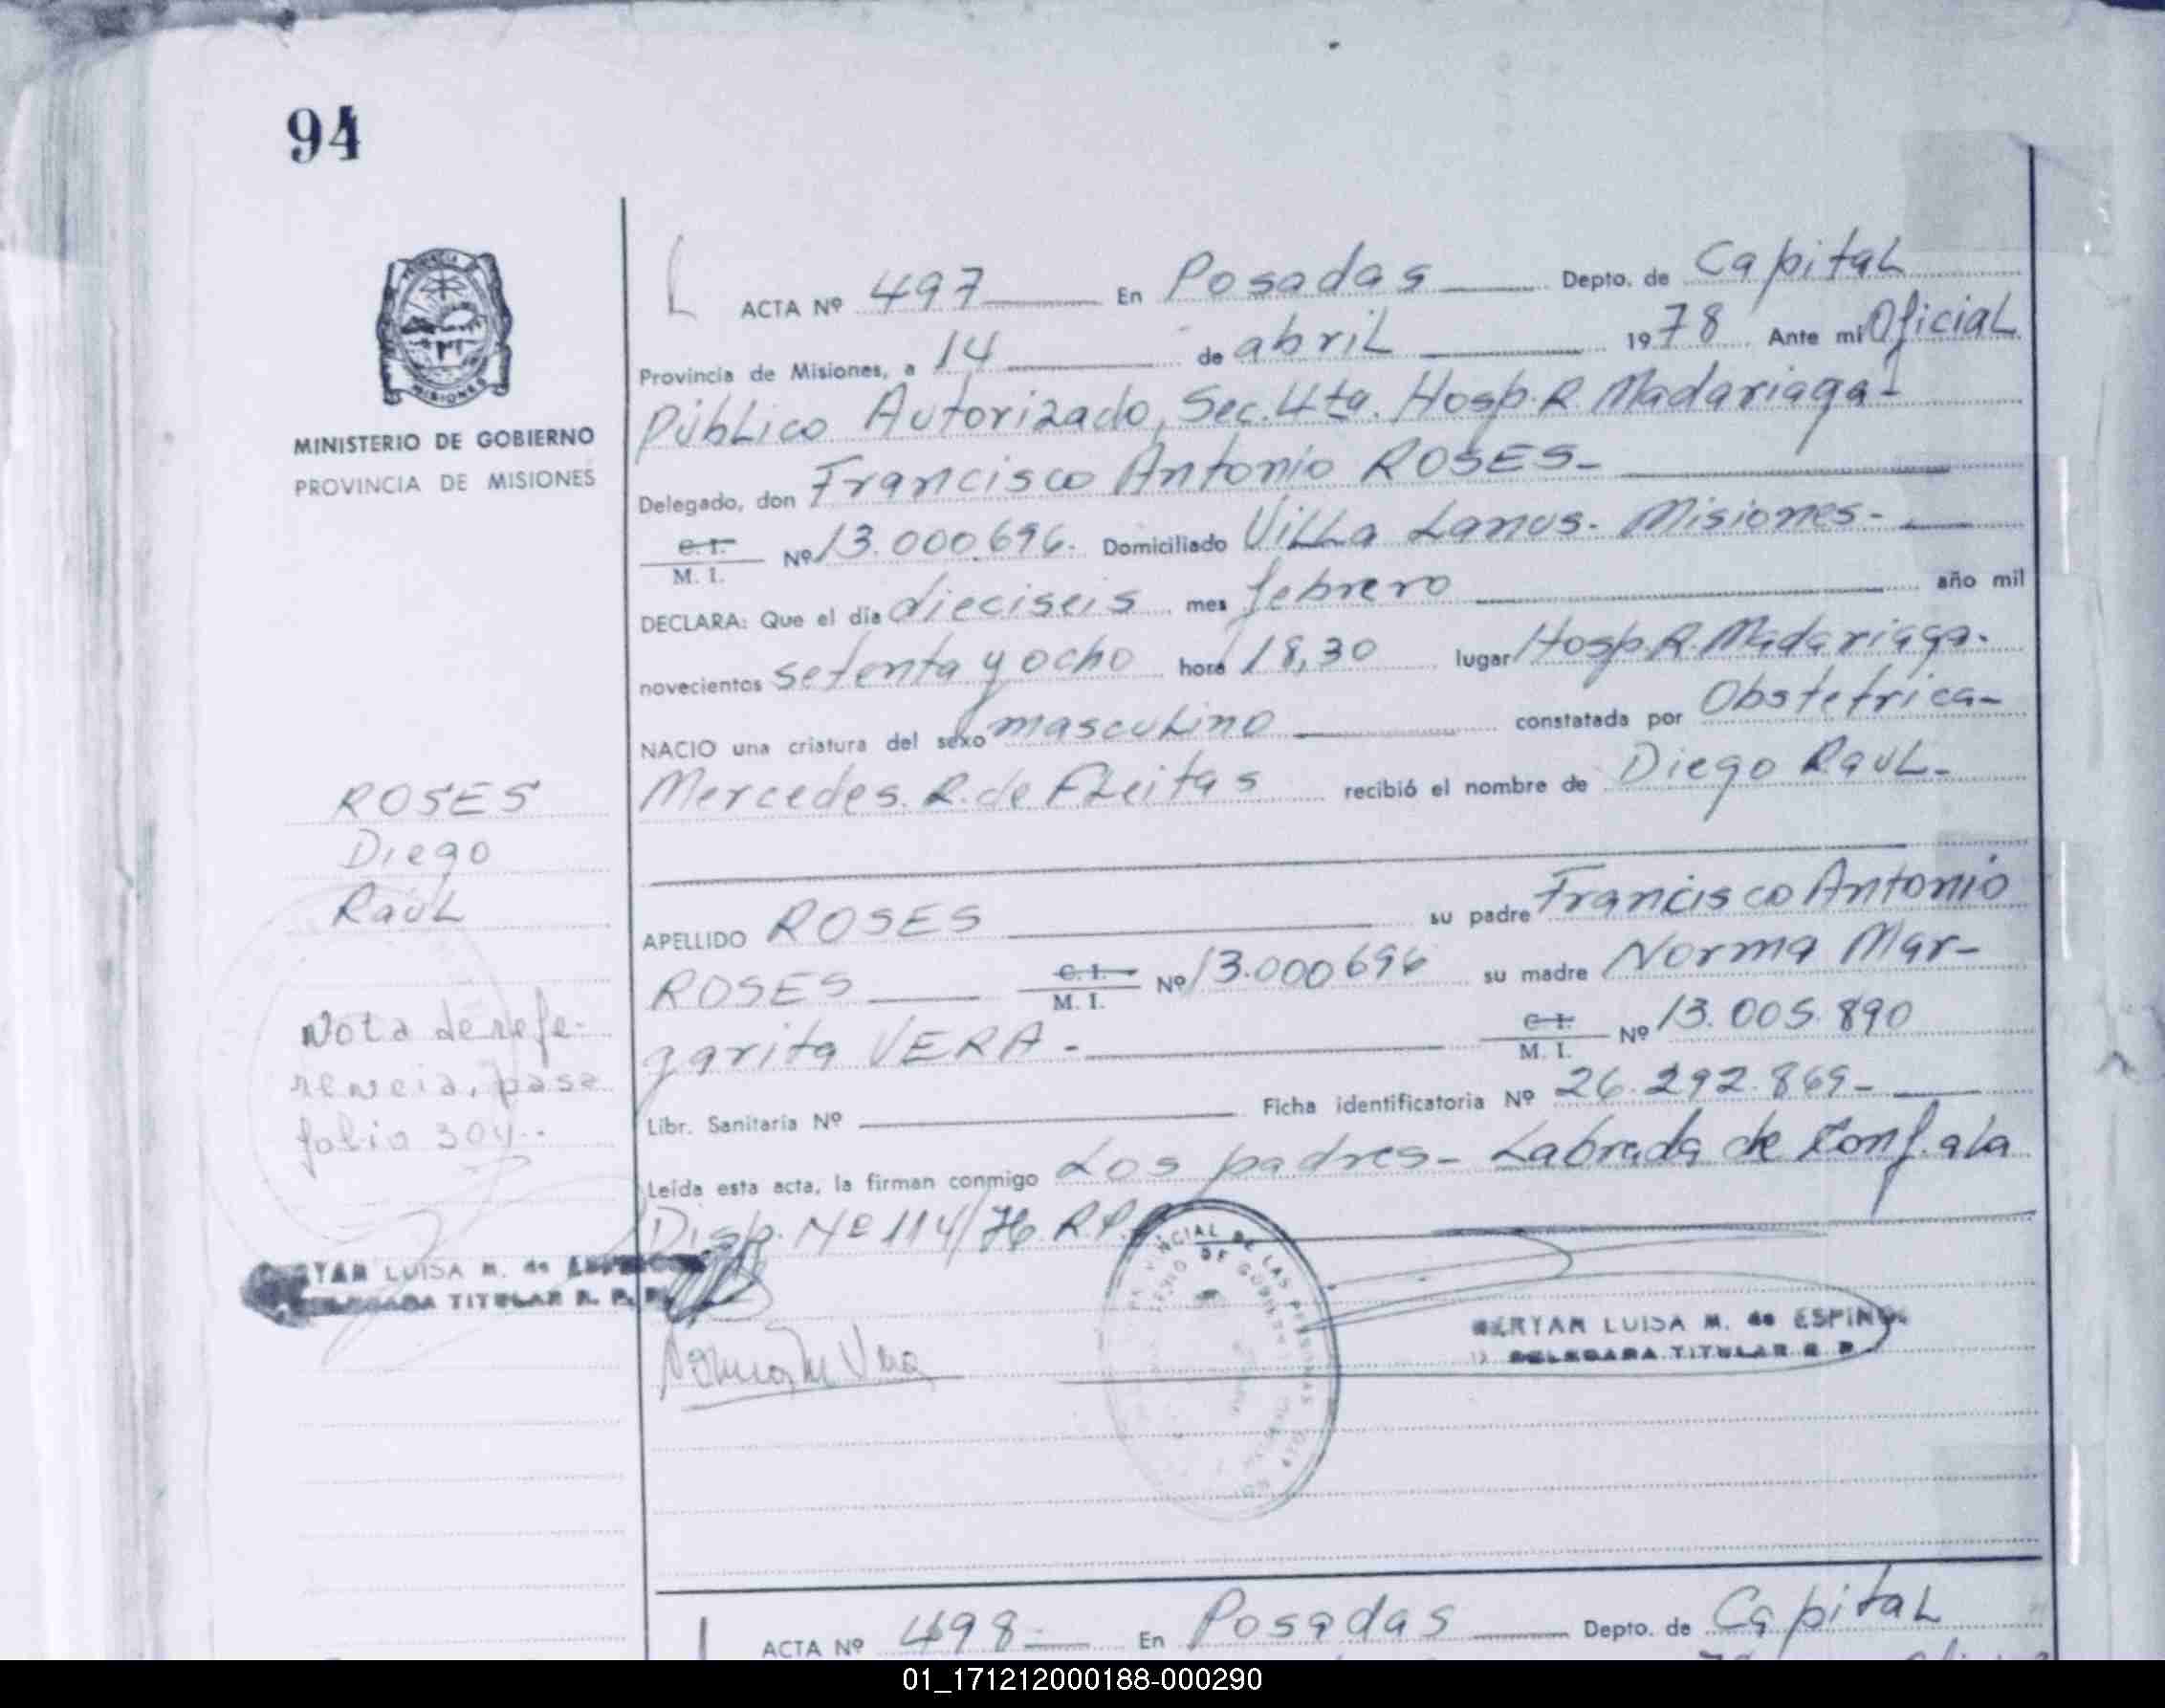 94
MINISTERIO DE GOBIERNO
PROVINCIA DE MISIONES
ACTA Nº 497 En Posadas Depto. de Capital
Provincia de Misiones, a 14 de abril 1978 Ante mi Oficial
Público Autorizado, Sec. 4ta. Hosp. R Madariaga-
Delegado, don Francisco Antonio ROSES-
C. I. M. I. Nº 13.000.696. Domiciliado Villa Lanus. Misiones-
DECLARA: Que el día dieciseis mes febrero año mil
novecientos setenta y ocho hora 18,30 lugar Hosp. R. Madariaga.
NACIO una criatura del sexo masculino constatada por Obstetrica-
Mercedes. R. de Fleitas recibió el nombre de Diego Raul-
ROSES
Diego
Raúl
APELLIDO ROSES su padre Francisco Antonio
ROSES C. I. M. I. Nº 13.000696 su madre Norma Mar-
garita VERA- C. I. M. I. Nº 13.005.890
Libr. Sanitaria Nº Ficha identificatoria Nº 26.292.869-
Leída esta acta, la firman conmigo Los padres- Labrada de Conf. a la
Disp. Nº 114/76. R.P.
Nota de refe-
rencia, pasa
folio 304.-
LUISA M. de
TITULAR R. P.
Norma M Vera
MERYAM LUISA M. de ESPINO
DELEGADA TITULAR R. P.
PROVINCIAL DE LAS PERSONAS
DE GOBIERNO
ACTA Nº 498- En Posadas Depto. de Capital
01_171212000188-000290